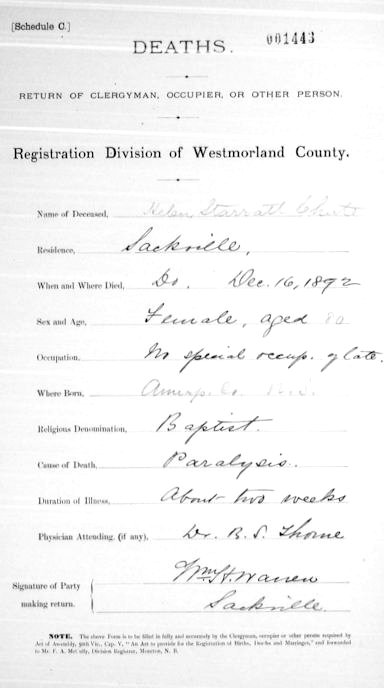 [Schedule C.]
001443
DEATHS.
RETURN OF CLERGYMAN, OCCUPIER, OR OTHER PERSON.
Registration Division of Westmorland County.
Name of Deceased, Helen Starratt Chute
Residence, Sackville,
When and Where Died, Do. Dec. 16, 1892
Sex and Age, Female, aged 80
Occupation, No special occup. of late.
Where Born, Co. N.S.
Religious Denomination, Baptist.
Cause of Death, Paralysis.
Duration of Illness, About two weeks
Physician Attending, (if any), Dr. B. S. Thorne
Signature of Party Wm. H. Warren
making return. Sackville.
NOTE. The above Form is to be filled in fully and accurately by the Clergyman, occupier or other person required by
Act of Assembly, 50th Vic., Cap. V, "An Act to provide for the Registration of Births, Deaths and Marriages," and forwarded
to Mr. F. A. McCully, Division Registrar, Moncton, N. B.